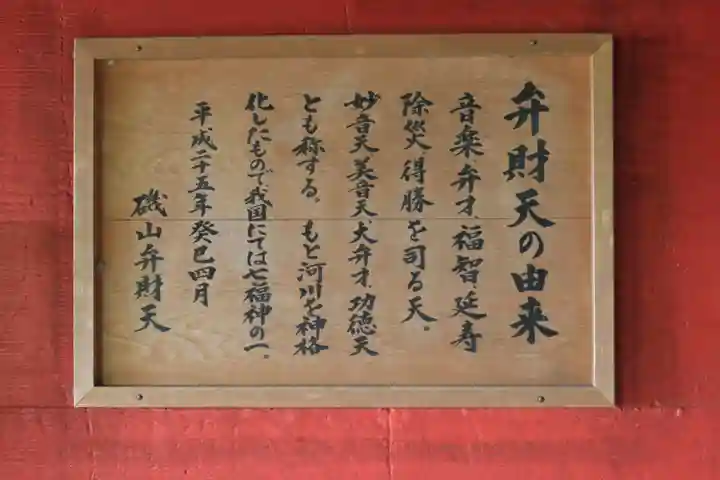 弁財天の由来
音楽弁才、福智、延寿
除災得勝を司る天。
妙音天、美音天、大弁才、功徳天
とも称する。もと河川を神格
化したもので我国にては七福神の一。
平成二十五年癸巳四月
磯山弁財天